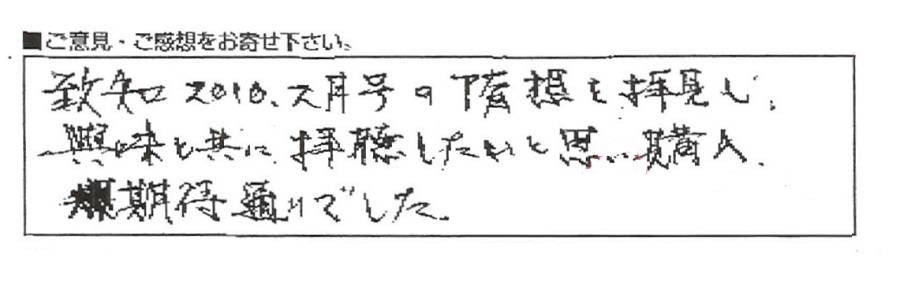 ■ご意見・ご感想をお寄せ下さい。
致知2010.2月号の随想を拝見し、
興味と共に拝聴したいと思い購入、
期待通りでした。